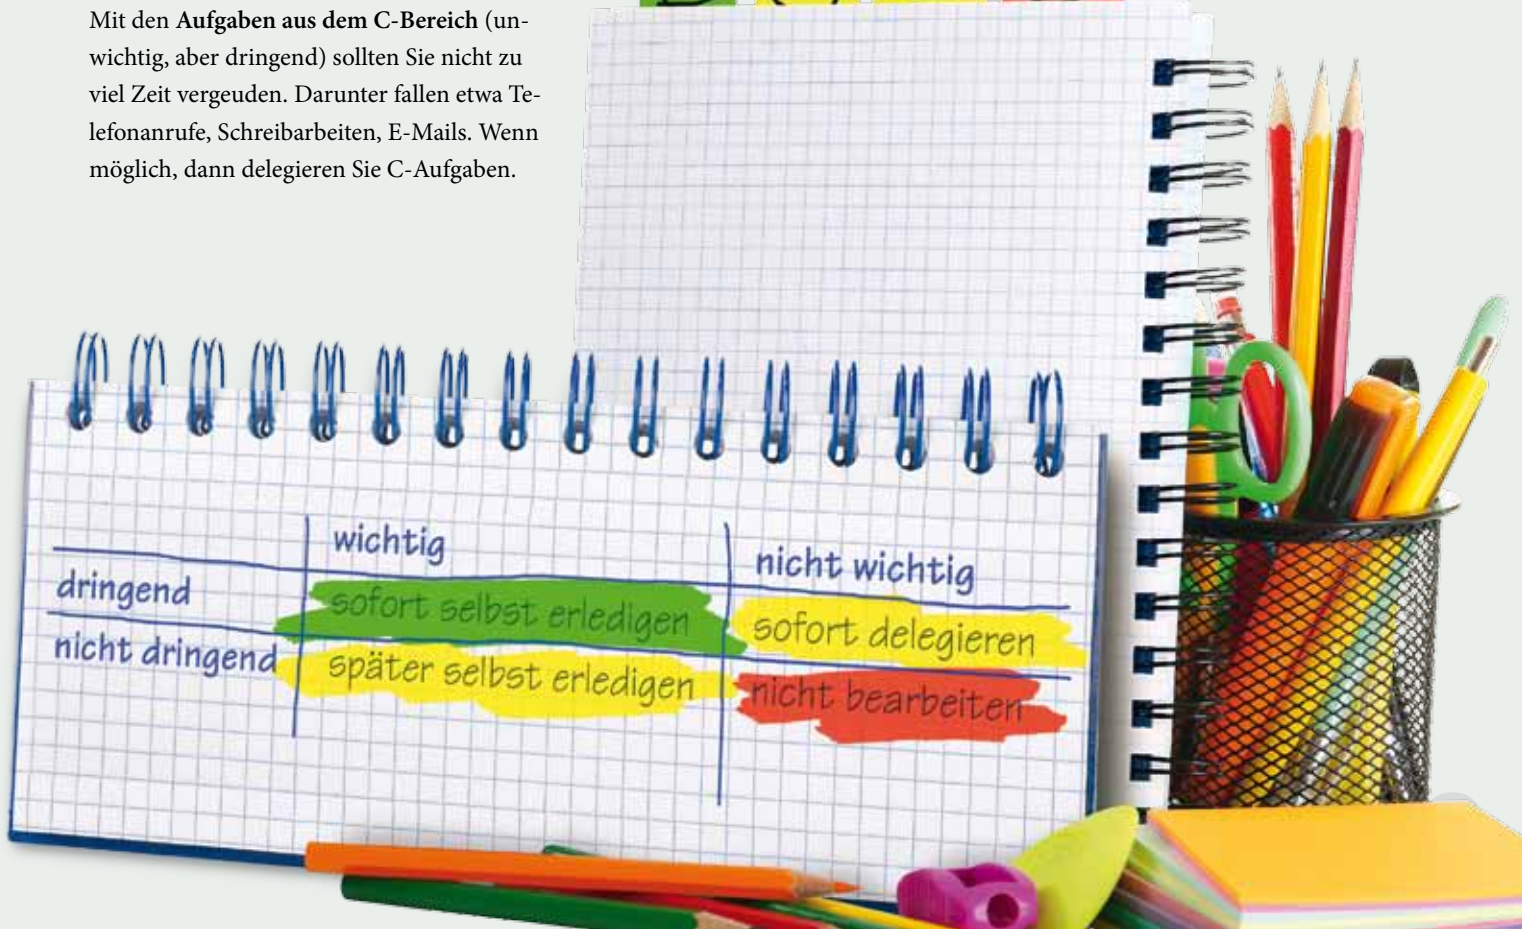 Mit den Aufgaben aus dem C-Bereich (un-
wichtig, aber dringend) sollten Sie nicht zu
viel Zeit vergeuden. Darunter fallen etwa Te-
lefonanrufe, Schreibarbeiten, E-Mails. Wenn
möglich, dann delegieren Sie C-Aufgaben.
wichtig nicht wichtig
dringend sofort selbst erledigen sofort delegieren
nicht dringend später selbst erledigen nicht bearbeiten